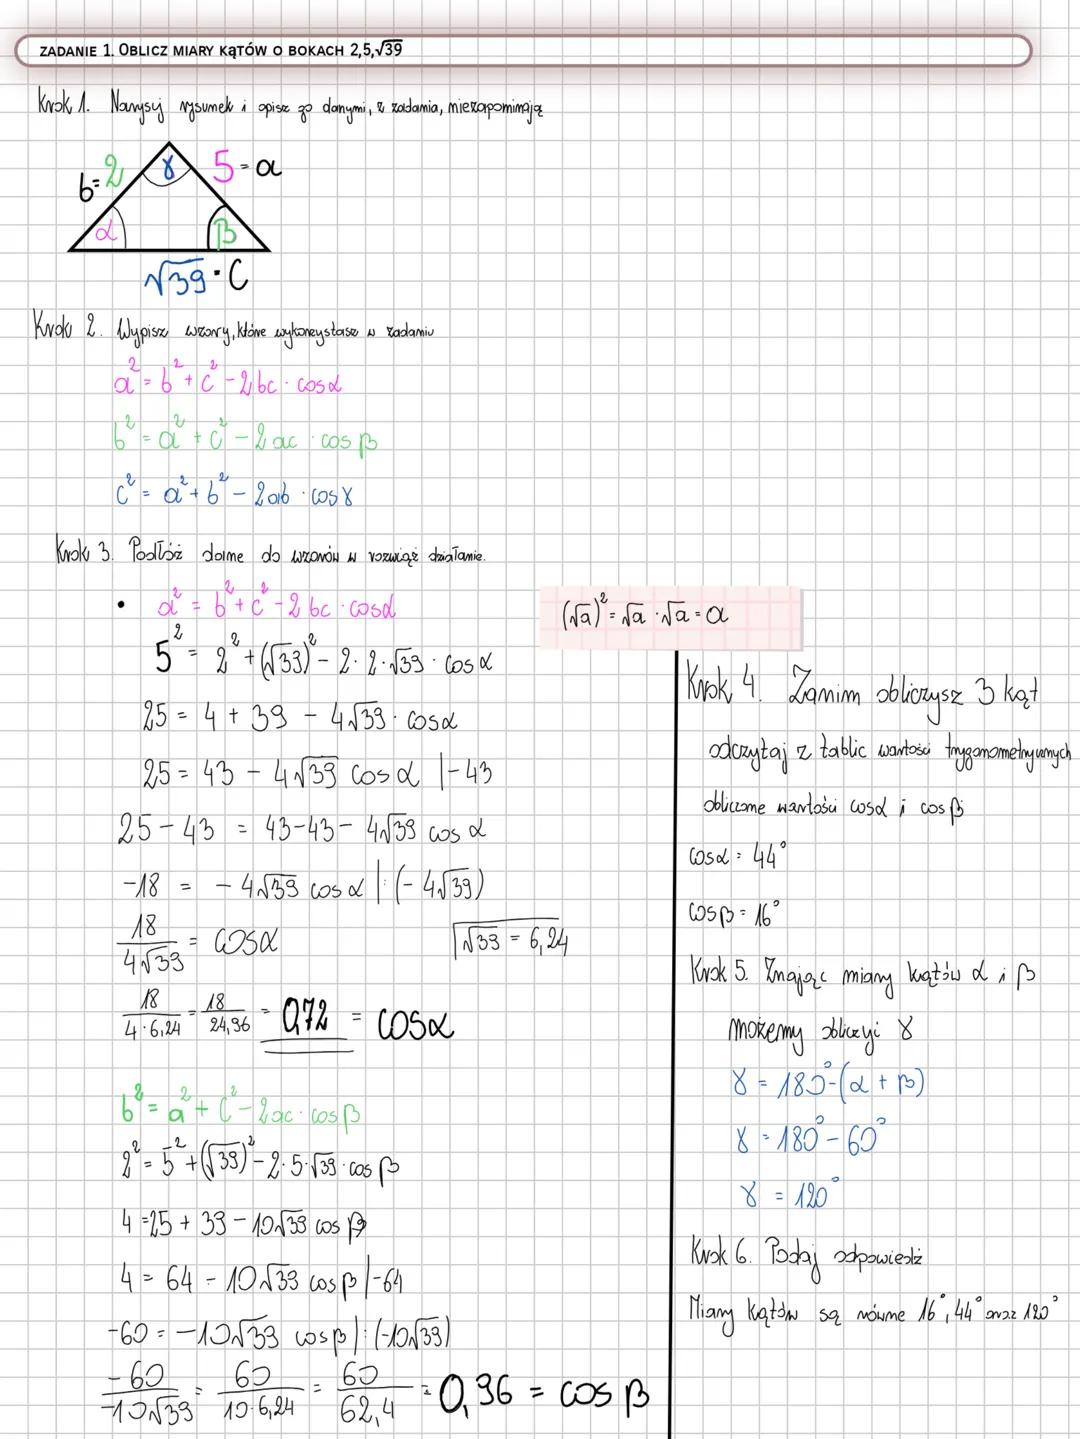 ZADANIE 1. OBLICZ MIARY KĄTÓW O BOKACH 2,5,√39
Krok 1. Narysuj rysunek i opisz go danymi, z zadania, niezapominają
b=2 γ 5=a
α β
√39=C
Krok 2. Wypisz wzory, które wykorzystasz w zadaniu
a² = b² + c² - 2bc · cosα
b² = a² + c² - 2ac · cosβ
c² = a² + b² - 2ab · cosγ
Krok 3. Podłóż dane do wzorów w rozwiąż działanie.
• a² = b² + c² - 2bc · cosα
(√a)² = √a · √a = a
5² = 2² + (√39)² - 2·2·√39 · cosα
25 = 4 + 39 - 4√39 · cosα
25 = 43 - 4√39 cosα |-43
25-43 = 43-43- 4√39 cosα
-18 = -4√39 cosα |:(-4√39)
18/4√39 = cosα
√39 = 6,24
18/4·6,24 = 18/24,96 = 0,72 = cosα
b² = a² + c² - 2ac · cosβ
2² = 5² + (√39)² - 2·5·√39 · cosβ
4 = 25 + 39 - 10√39 cosβ
4 = 64 - 10√39 cosβ |-64
-60 = -10√39 cosβ |:(-10√39)
-60/-10√39 = 60/10·6,24 = 60/62,4 = 0,96 = cosβ
Krok 4. Zanim obliczysz 3 kąt
odczytaj z tablic wartości trygonometrycznych
obliczone wartości cosα i cosβ
cosα = 44°
cosβ = 16°
Krok 5. Znając miary kątów α i β
możemy obliczyć γ
γ = 180°-(α + β)
γ = 180° - 60°
γ = 120°
Krok 6. Podaj odpowiedź
Miary kątów są równe 16°, 44° oraz 120°